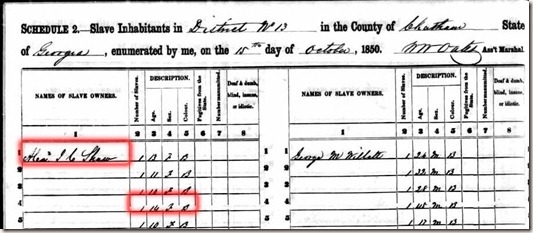 SCHEDULE 2. Slave Inhabitants in District No 13 in the County of Chatham State
of Georgia, enumerated by me, on the 15th day of October, 1850. Ass't Marshal
NAMES OF SLAVE OWNERS. Number of Slaves. DESCRIPTION. Age. Sex. Colour. Fugitives from the State. Number manumitted. Deaf & dumb, blind, insane, or idiotic. NAMES OF SLAVE OWNERS. Number of Slaves. DESCRIPTION. Age. Sex. Colour. Fugitives from the State. Number manumitted. Deaf & dumb, blind, insane, or idiotic.
1 2 3 4 5 6 7 8 1 2 3 4 5 6 7 8
1 Shaw 1 13 F B 1 George M Willett 1 24 M B
2 1 11 F B 2 1 M B
3 1 F B 3 1 28 M B
4 1 14 F B 4 1 M B
5 1 10 F B 5 1 17 M B